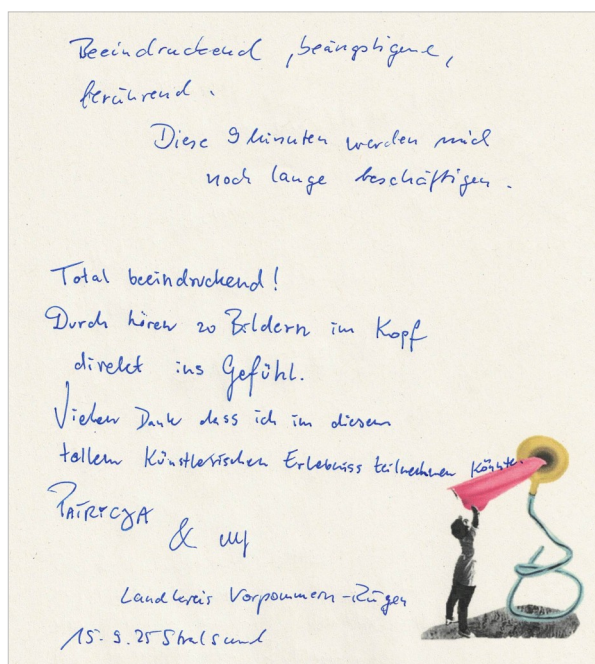 Beeindruckend, beängstigend,
berührend.
Diese 9 Minuten werden mich
noch lange beschäftigen.
Total beeindruckend!
Durch hören zo Bildern im Kopf
direkt ins Gefühl.
Vielen Dank dass ich im diesem
tollem Künstlerischen Erlebniss teilnehmen könnte.
PATRYCJA
&
Landkreis Vorpommern-Rügen
15.9.25 Stralsund